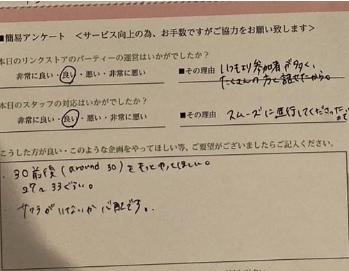 ■簡易アンケート ＜サービス向上の為、お手数ですがご協力をお願い致します＞
本日のリンクストアのパーティーの運営はいかがでしたか？
非常に良い・良い・悪い・非常に悪い ■その理由 いつもより参加者が多く、
たくさんの方と話せたから。
本日のスタッフの対応はいかがでしたか？
非常に良い・良い・悪い・非常に悪い ■その理由 スムーズに進行してくださった
こうした方が良い・このような企画をやってほしい等、ご要望がございましたらご記入ください。
・30前後(around 30)をもっとやってほしい。
27〜33ぐらい。
・サクラがいないか心配です。